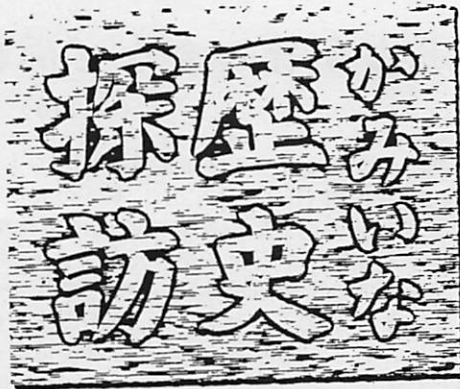 かみいな
歴史
探訪